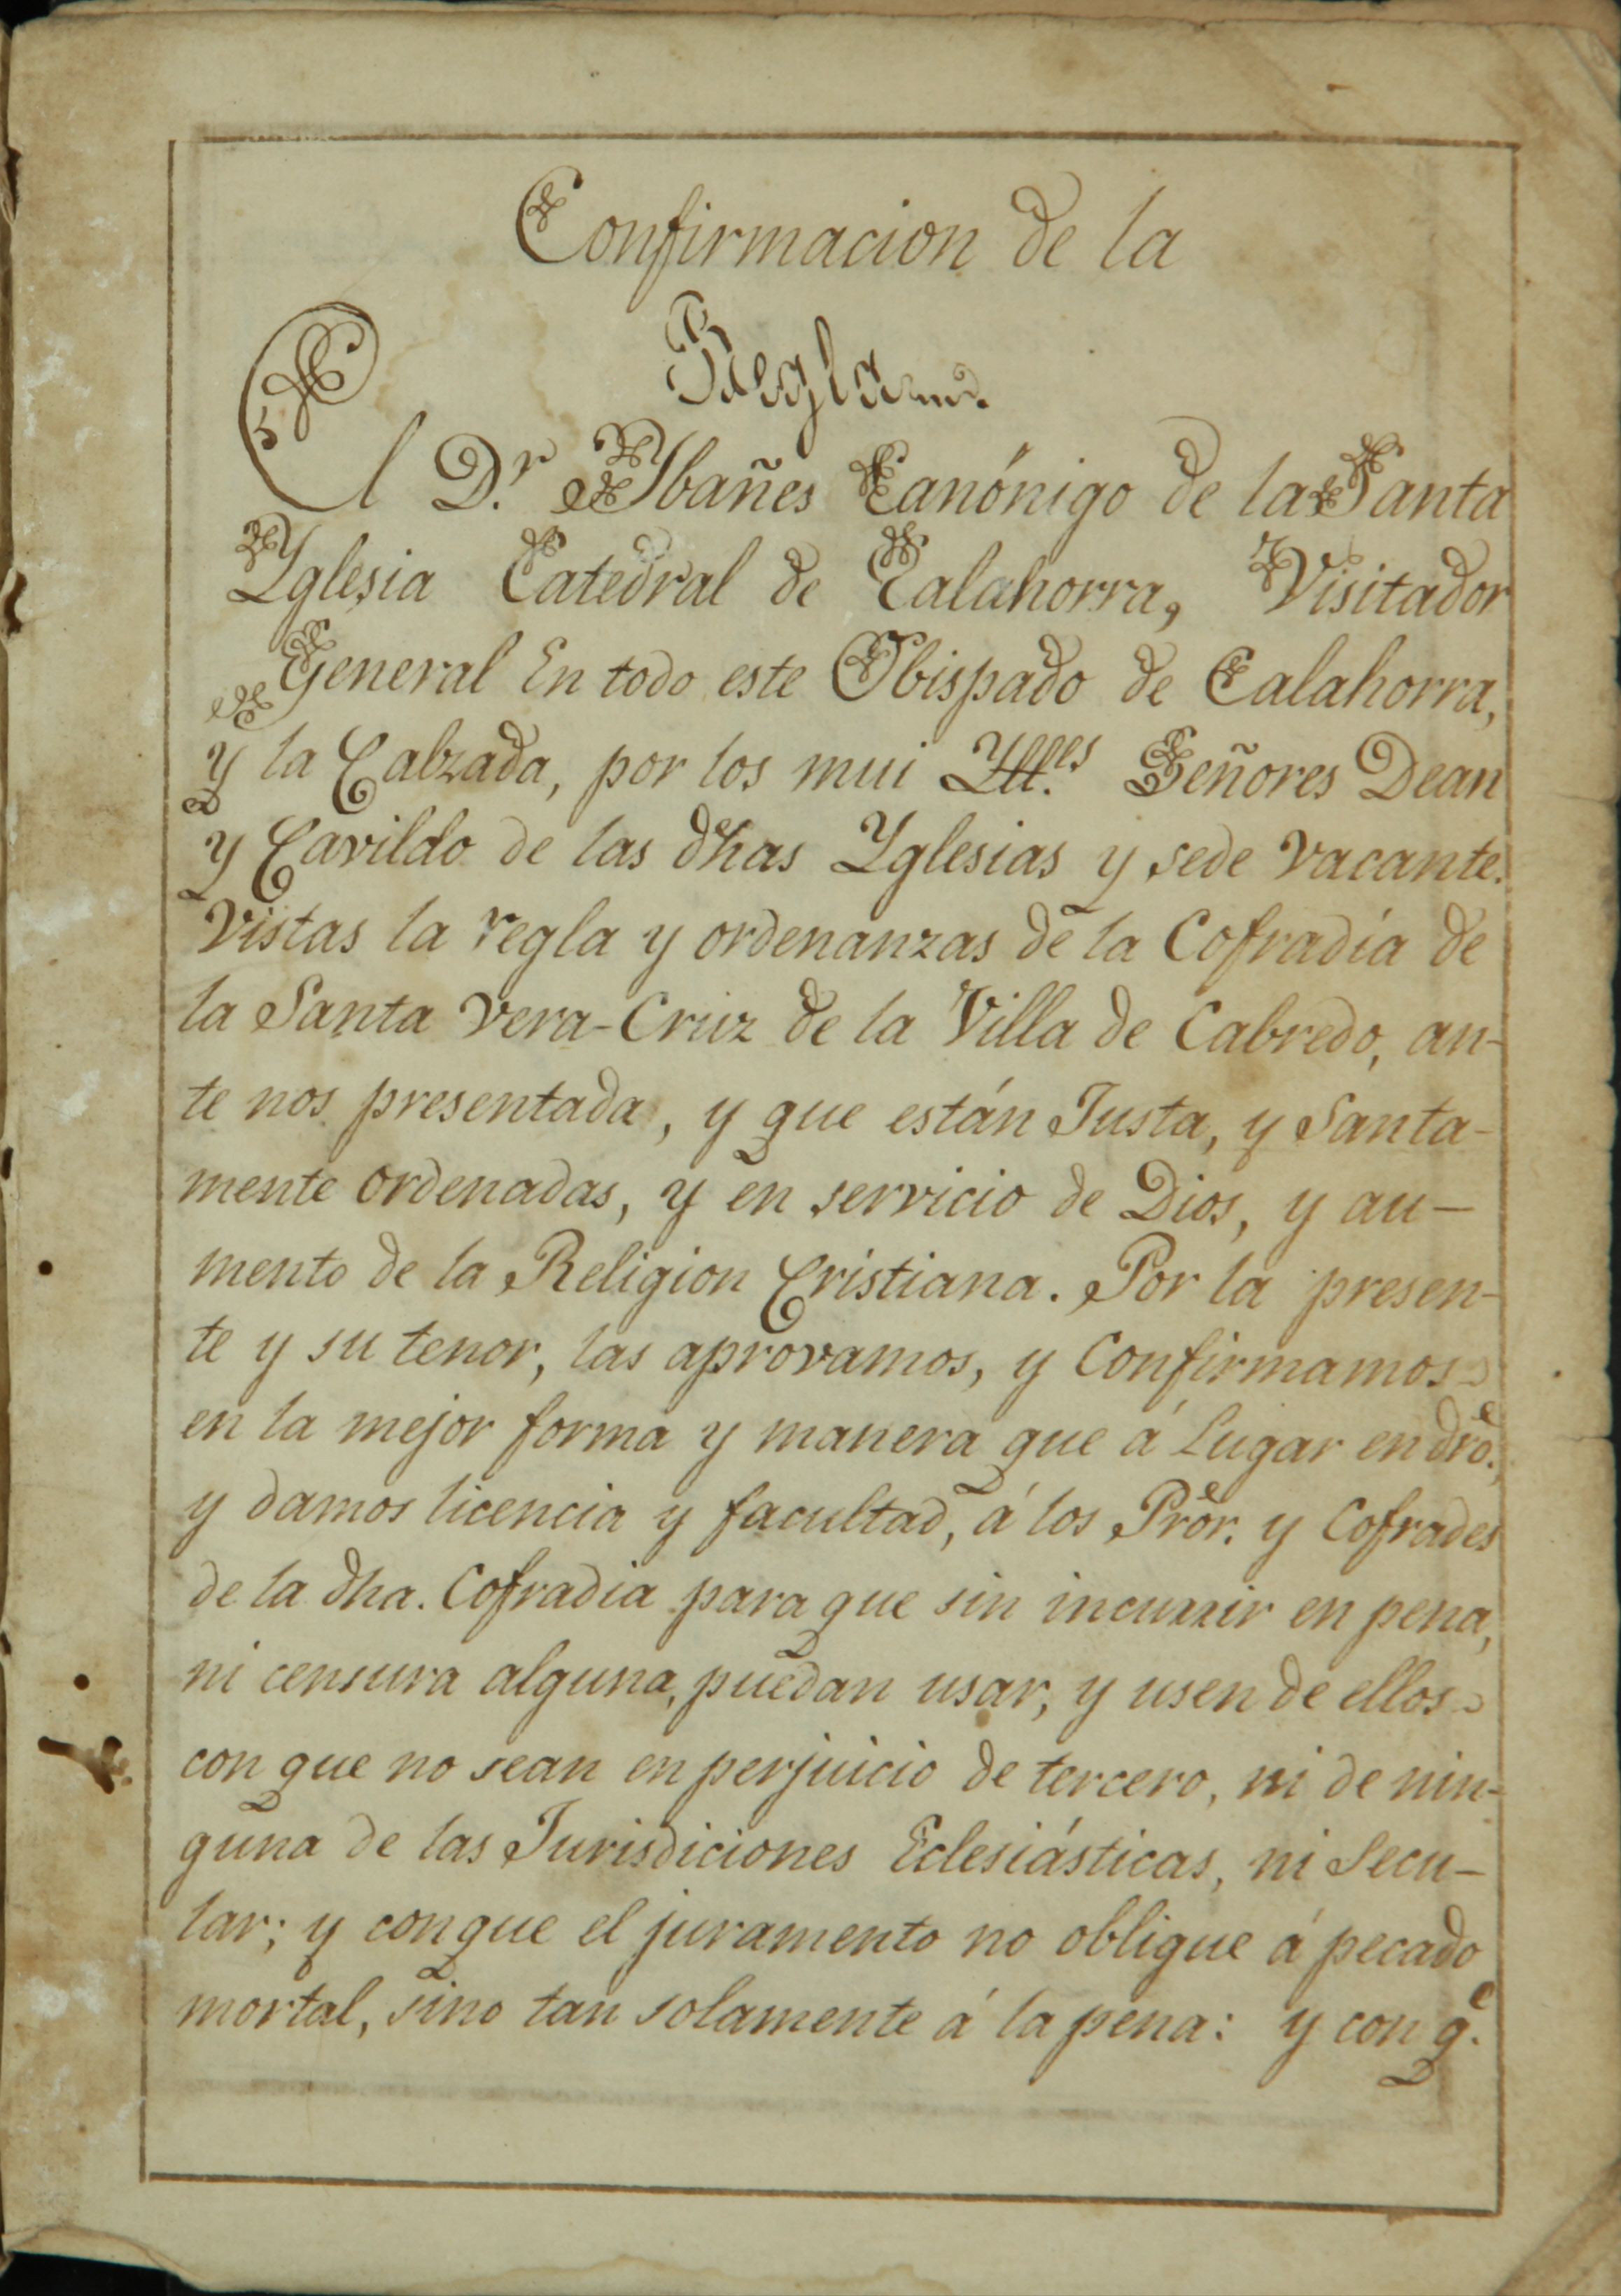 Confirmacion de la
Regla
El D.r Ybañes Canónigo de la Santa
Yglesia Catedral de Calahorra, Visitador
General En todo este Obispado de Calahorra,
y la Calzada, por los mui Yll.es Señores Dean
y Cavildo de las dhas Yglesias y sede vacante.
Vistas la regla y ordenanzas de la Cofradía de
la Santa Vera-Cruz de la Villa de Cabredo, an-
te nos presentada, y que están Justa, y Santa-
mente ordenadas, y en servicio de Dios, y au-
mento de la Religion Cristiana. Por la presen-
te y su tenor, las aprovamos, y Confirmamos
en la mejor forma y manera que á Lugar en dro.,
y damos licencia y facultad, á los Pror. y Cofrades
de la dha. Cofradia para que sin incurrir en pena,
ni censura alguna, puedan usar, y usen de ellos
con que no sean en perjuicio de tercero, ni de nin-
guna de las Jurisdiciones Eclesiásticas, ni Secu-
lar; y con que el juramento no obligue á pecado
mortal, sino tan solamente á la pena: y con q.e